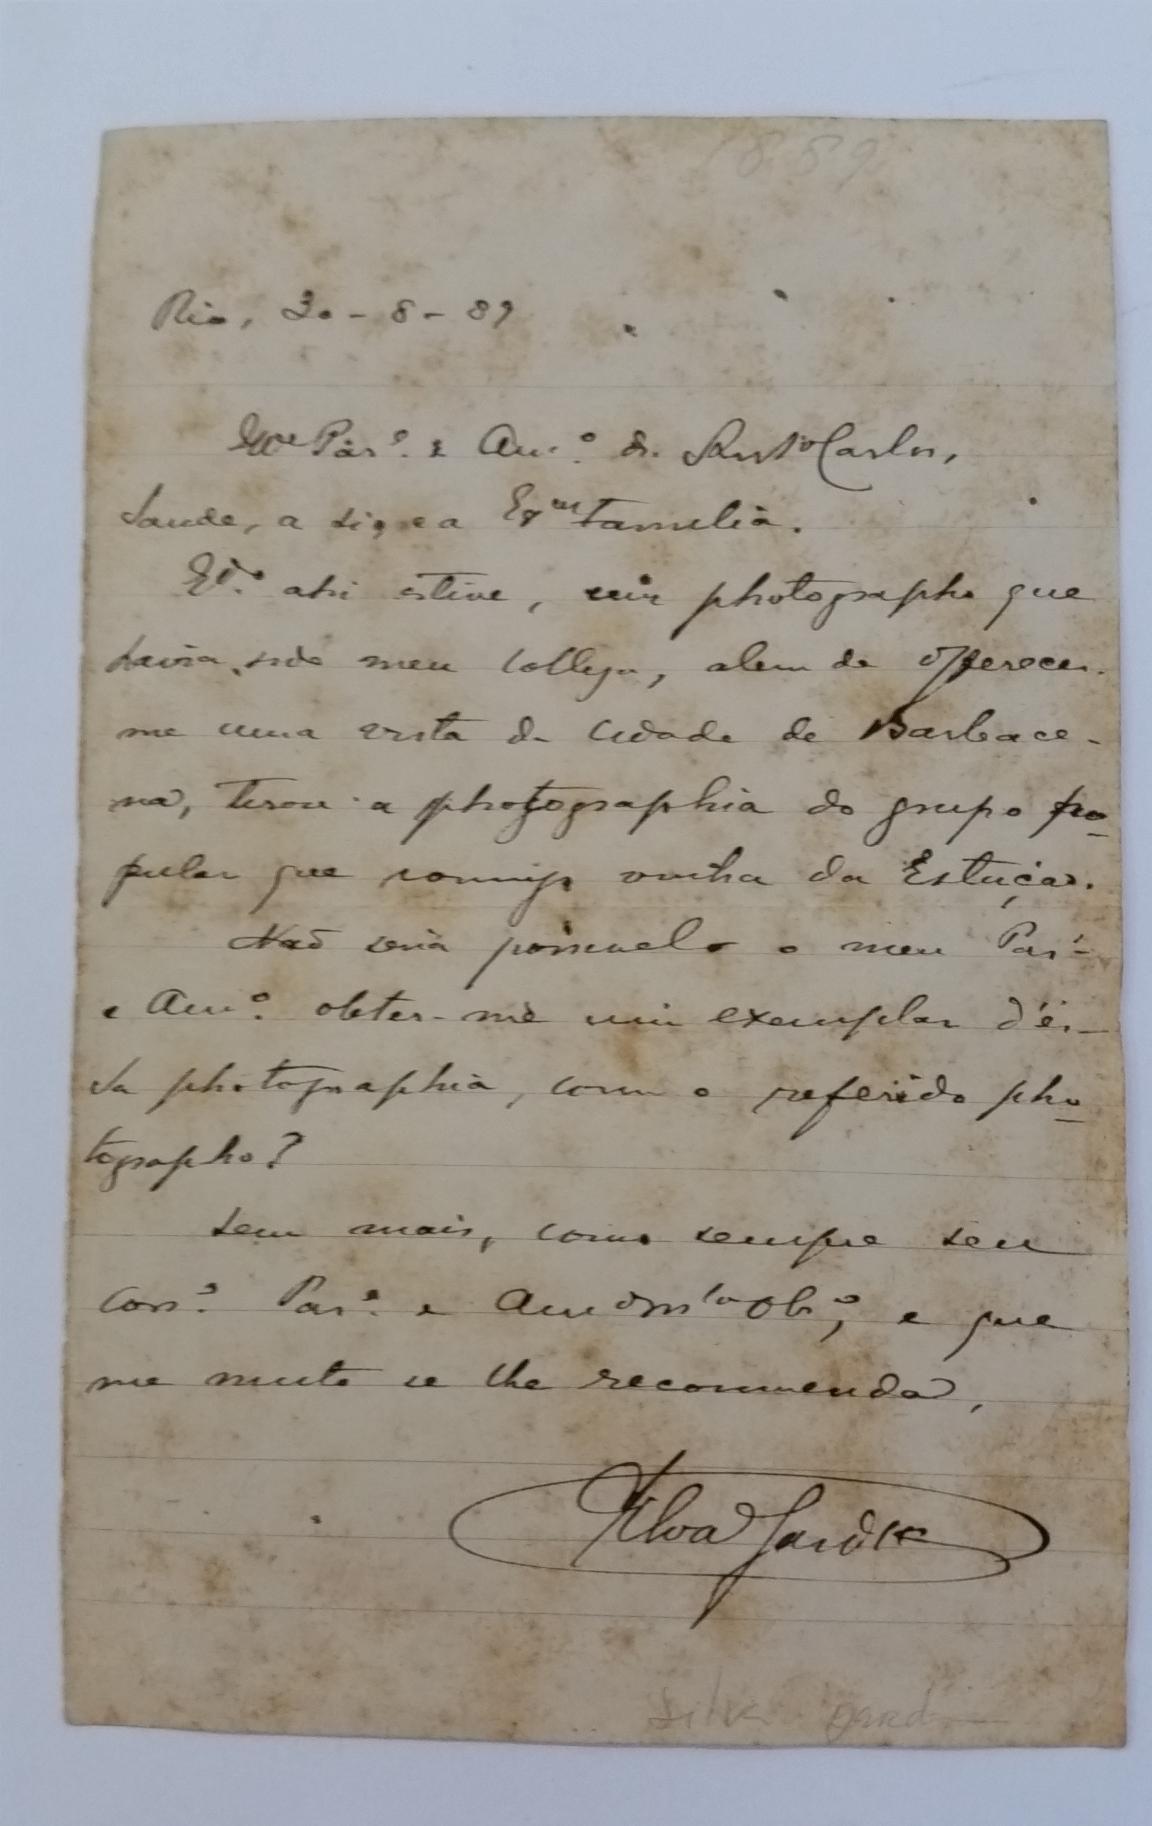 1889
Rio, 30-8-89
Par.º e Am.º dr. Carlos,
Saude, a si, e a Exma Familia.
Qd.º ahi estive, um photographo que
havia sido meu collega, alem de offerecer-
me uma vista da Cidade de Barbace-
na, tirou a photographia do grupo po-
pular que commigo vinha da Estação.
Não seria possivel o meu Par.º
e Am.º obter-me um exemplar d'es-
sa photographia, com o referido pho-
tographo?
Sem mais, como sempre seu
Corr.º Par.º e Amº mto Obrº, e que
me muito se lhe recommenda,
Silva Jardim
Silva Jardim